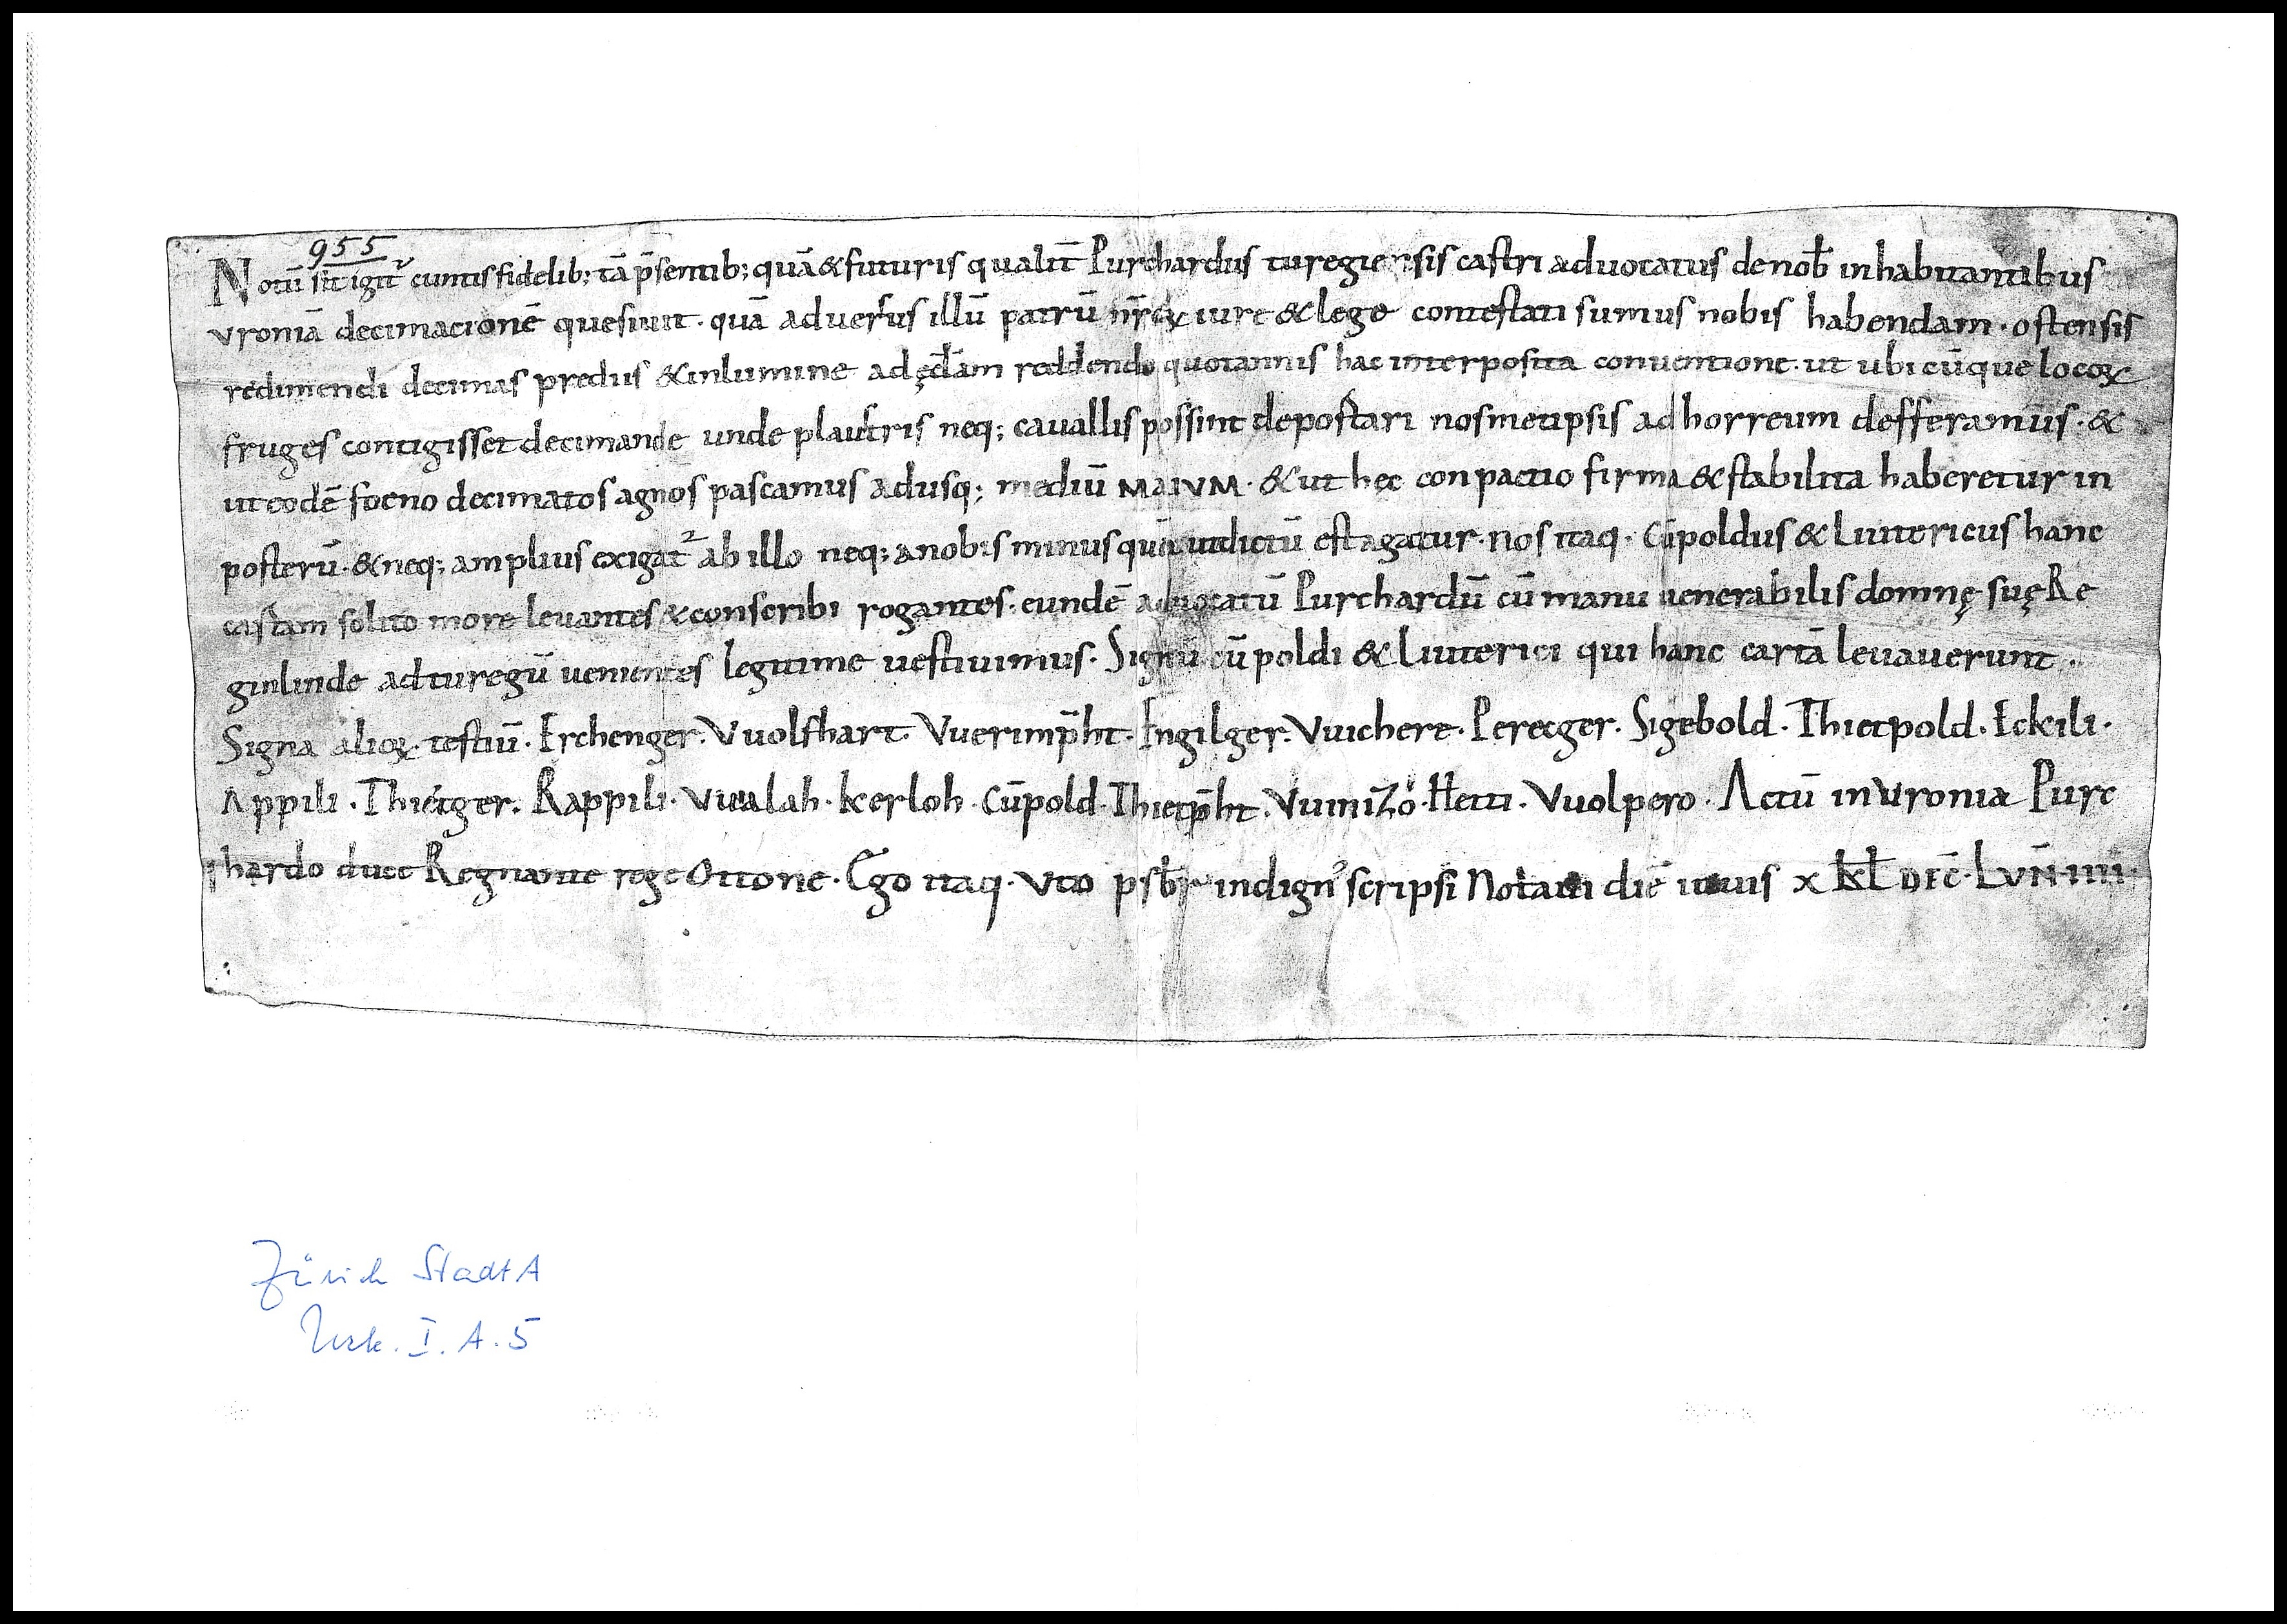 955
Notū sit igit̄ cunctis fidelib; tā p̄sentib; quā & futuris qualit̄ Purchardus turegiensis castri aduocatus de nob̄ inhabitantibus
vroniā decimacionē quesiuit · quā aduersus illū patrū nr̄oꝝ iure & lege contestati sumus nobis habendam · ostensis
redimendi decimas prediis & inlumine ad ęcl̄am reddendo quotannis hac interposita conuentione · ut ubicūque locoꝝ
fruges contigisset decimande unde plaustris neq; cauallis possint deportari nosmetipsis ad horreum defferamus · &
ut eodē foeno decimatos agnos pascamus adusq; mediū MAIVM · & ut hęc conpactio firma & stabilita haberetur in
posterū · & neq; amplius exigat̄ ab illo neq; a nobis minus quā indictū est agatur · nos itaq · Cūpoldus & Liutericus hanc
cartam solito more leuantes & conscribi rogantes · eundē aduocatū Purchardū cū manu uenerabilis domnę suę Re
ginlinde ad turegū uenientes legitime uestiuimus · Signū cūpoldi & Liuterici qui hanc cartā leuauerunt ·
Signa alioꝝ testiū · Erchenger · Vuolfhart · Vuerimp̄ht · Engilger · Vuichere · Perecger · Sigebold · Thietpold · Eckili ·
Appili · Thietger · Rappili · Vualah · Kerloh · Cūpold · Thietp̄ht · VuiniZo · Hetti · Vuolpero · Actū in Vronia Purc
hardo duce Regnante rege Ottone · Ego itaq · Vto psb̄r indignꝰ scripsi Notaui diē iouis x kl̄ DEC̄ · LVN̄ IIII
Zürich StadtA
Urk. I. A. 5